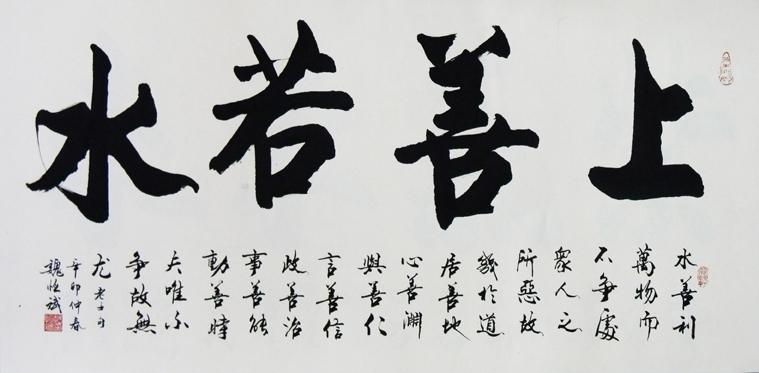 上善若水
水善利
萬物而
不争處
衆人之
所惡故
幾於道
居善地
心善淵
與善仁
言善信
政善治
事善能
動善時
夫唯不
争故無
尤 老子句
辛卯仲春
魏